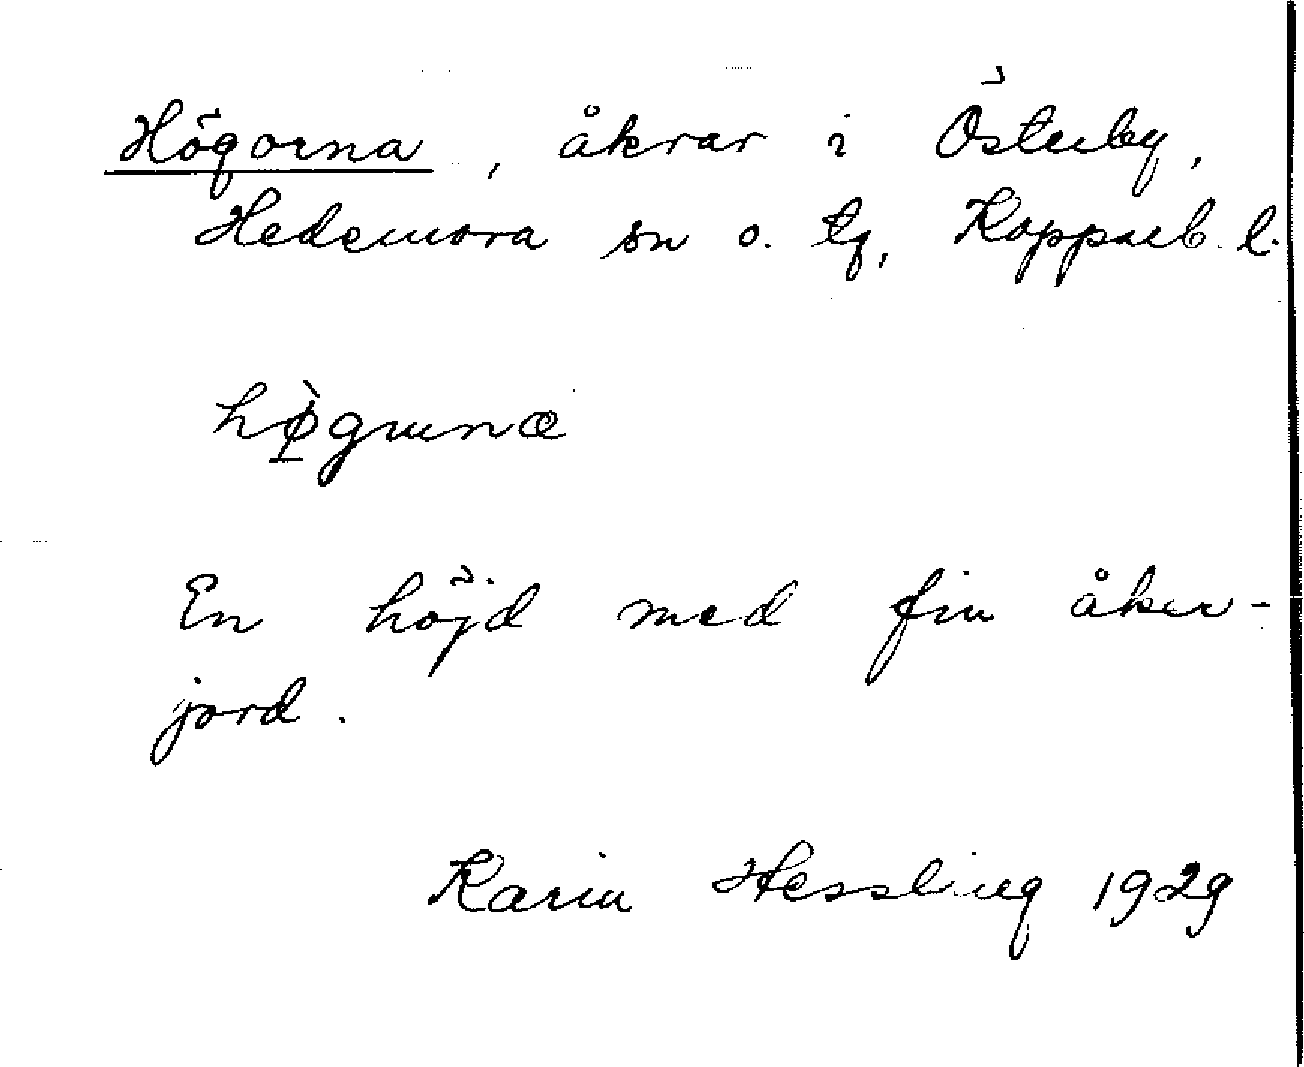 Högorna, åkrar i Österby,
Hedemora sn o. tg, Kopparb. l.
hø̀gunæ
En höjd med fin åker-
jord.
Karin Hessling 1929